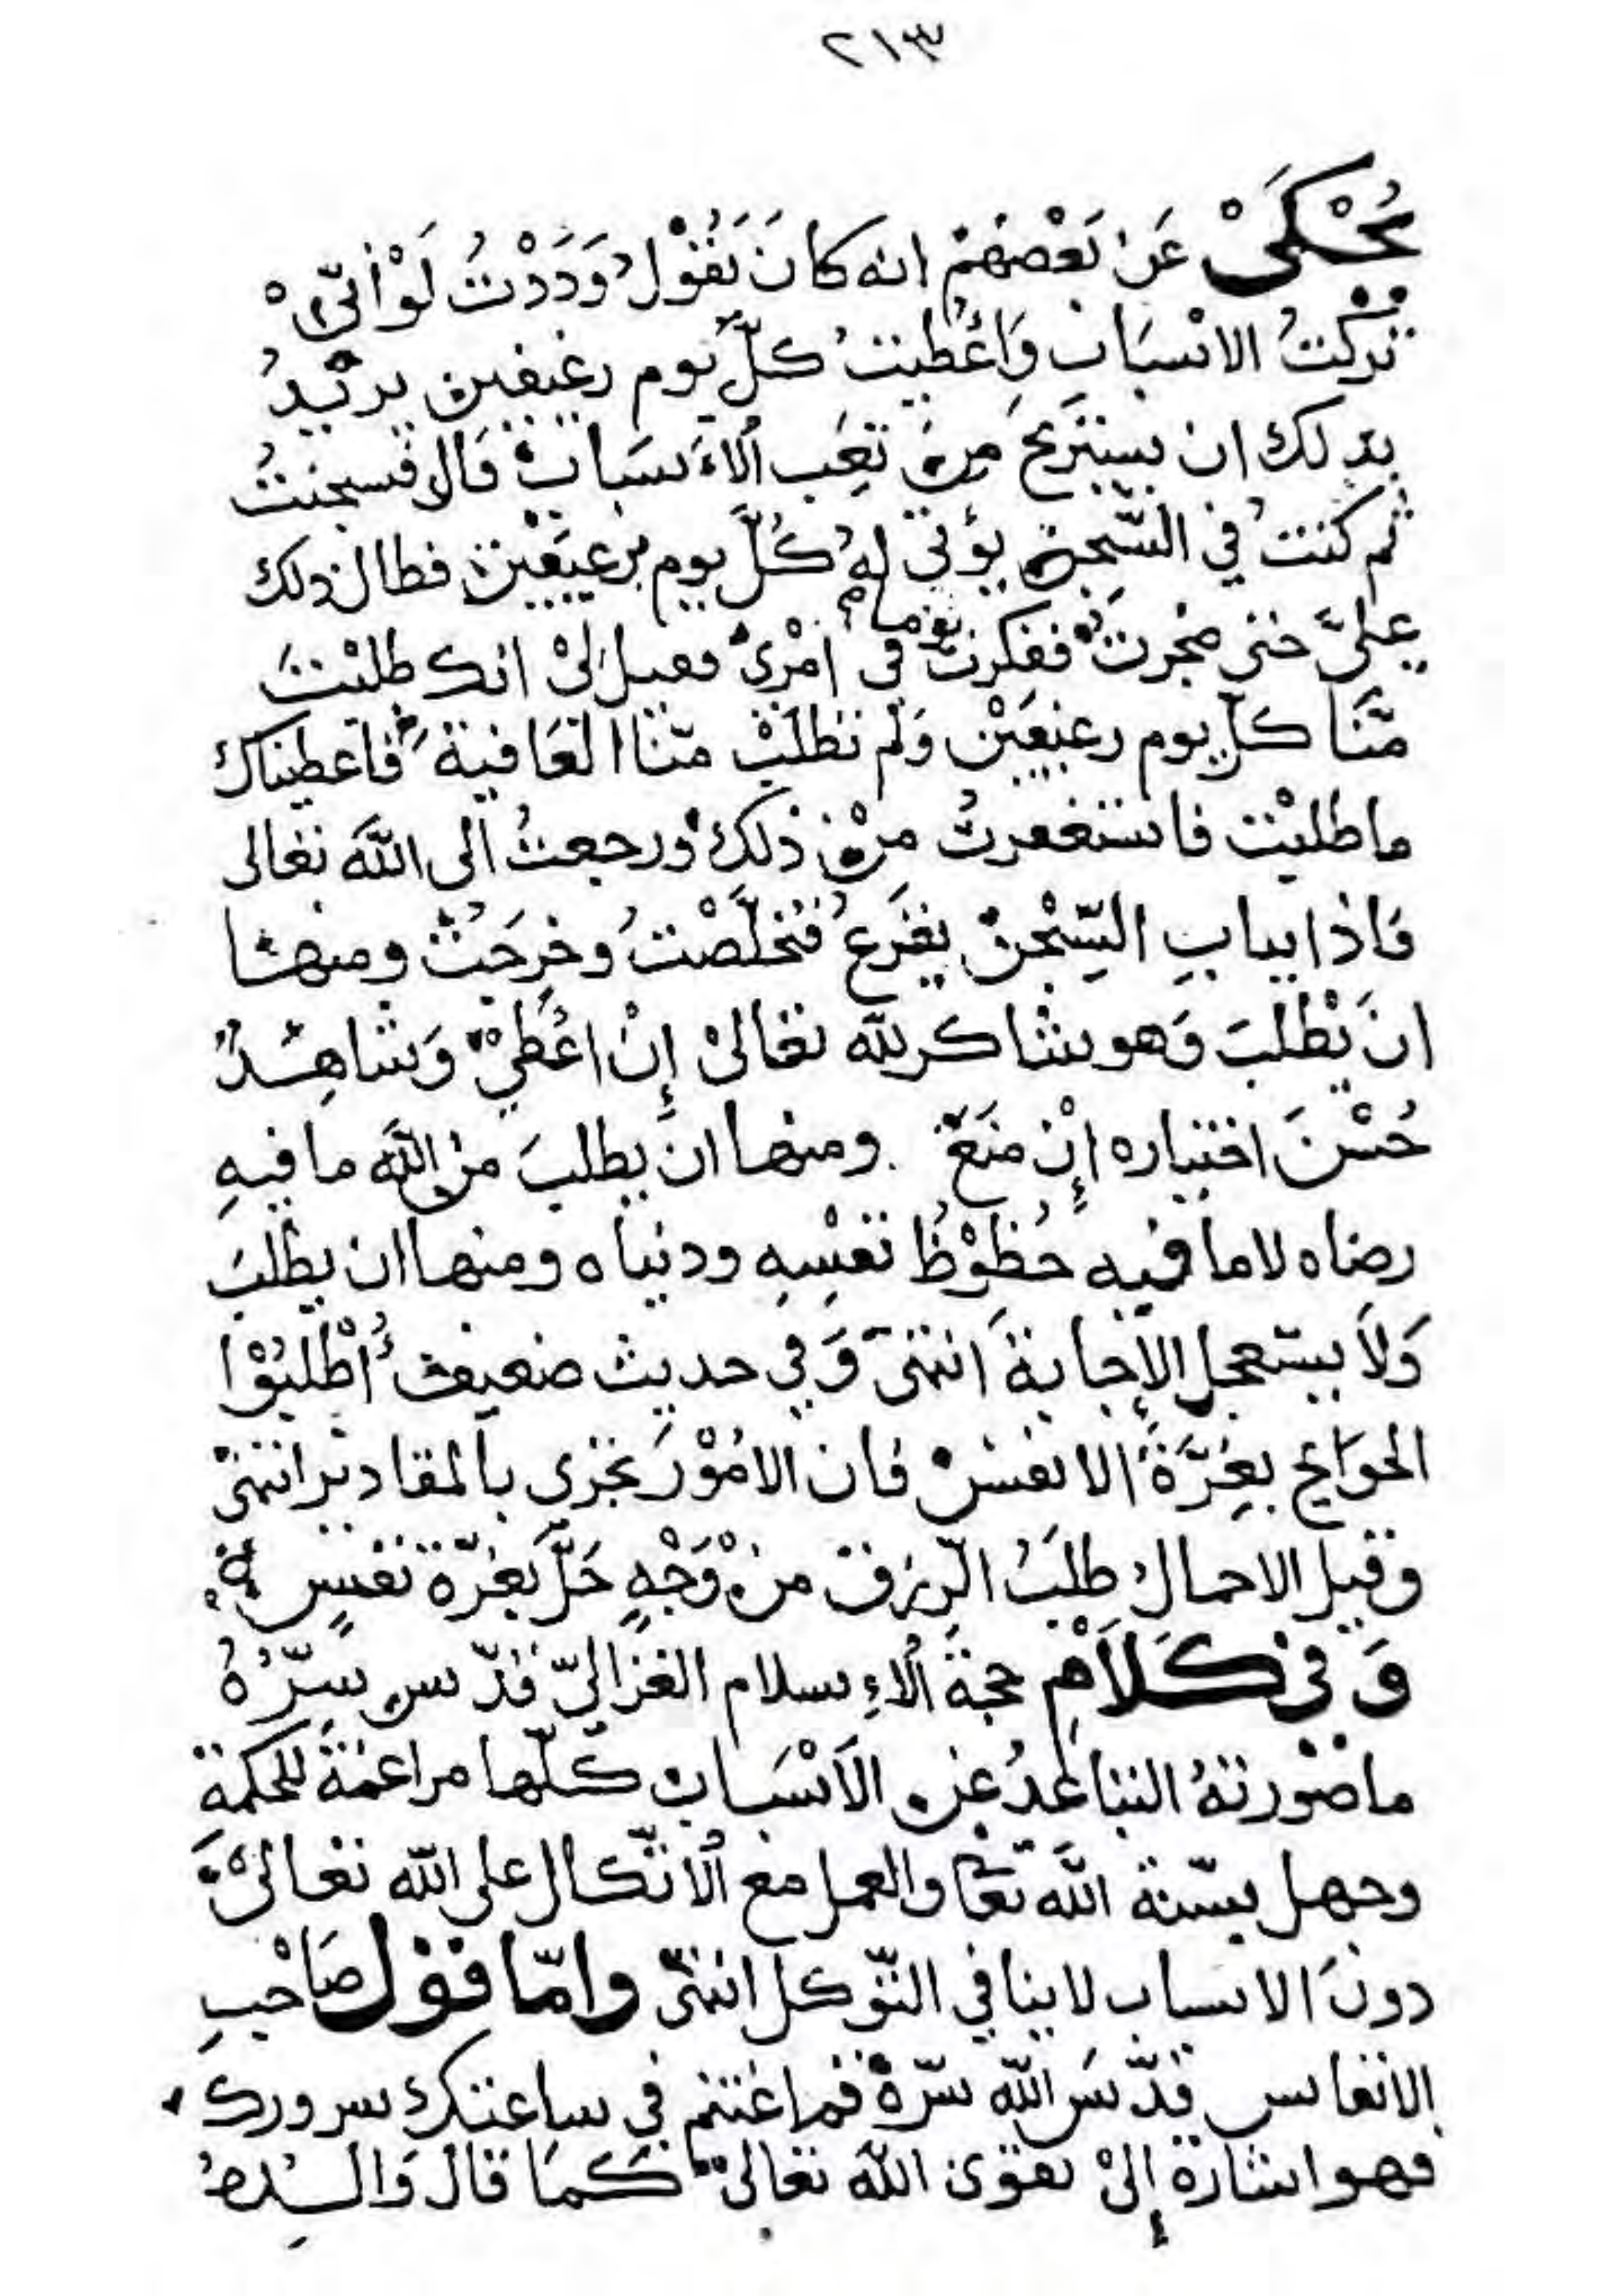 ٢١٣
يُحْكَىْ عَنْ بَعْضِهِمْ انه كَانَ يَقُوْلُ وَدَدْتُ لَوْ أَنّيْ
تركْتُ الاسْبَابَ وَأُعْطِيتُ كلَّ يَوم رغيفين يريْدُ
بذلك ان يستَرِيحَ مِنْ تَعَبِ الاَسَبابِ قَالَ فسجنتُ
ثم كنتُ في السِّجن يؤتى لِهُ كُلَّ يوم برغيفَيْن فطال ذلك
عليَّ حتى ضجرتُ ففكرتُ يوما في امْرِيْ فقيل لىْ انك طلبْتَ
مِنَّا كلّ يوم رغيفَيْن وَلم تطلبْ منّا العَافية فاعطيناك
ما طلبْت فاستغفرتُ مِنْ ذلك ورجعتُ الى اللّهَ تعَالى
فَاذا ببابِ السِّجْنِ يقرَعُ فتخلَّصْتُ وخرجَتُ ومنها
انَ يْطلبَ وَهو شاكر للّه تعَالىْ إِنْ اعُطِيْ وَشاهِدٌ
حُسْنَ اختياره إِنْ منَعَ ومنها ان يطلبَ من اللَّه ما فيهِ
رضاه لا ما فيه حُظوْظُ نفْسِهِ ودنياه ومنها ان يطْلبَ
وَلاَ يستعجل الإجابة انتهىَ وَفي حديث ضعيف أُطْلبُوْا
الحوَايج بعِزَّةَ الانفسْ فان الامُوْرَ تجري بالمقادير انتهىْ
وقيل الاجمال طلَبُ الرِّزق منْ وَجْهٍ حَلَّ بعزّة نفسٍ
وَفىْ كَلَاَمْ حجة الاءِسلام الغزاليّ قدّس سِرّهُ
ما صُوْرتهُ التباعدُ عن الاَسْبَاب كلّها مراغمَةً للحكمةِ
وجهل بسّنة اللّه تعَا والعمل مع الاتّكال على اللّه تعَالىْ
دونَ الاسباب لا ينافي التّوكل انتهىْ وامّا قوْل صَاحْبِ
الانفاس قدّسَ اللّه سرّهْ فما غتنم في ساعتك سرورك
فهو اشارة إِلىْ تقوَى اللّه تعَالىْ كَمَا قال وَالسِرّ